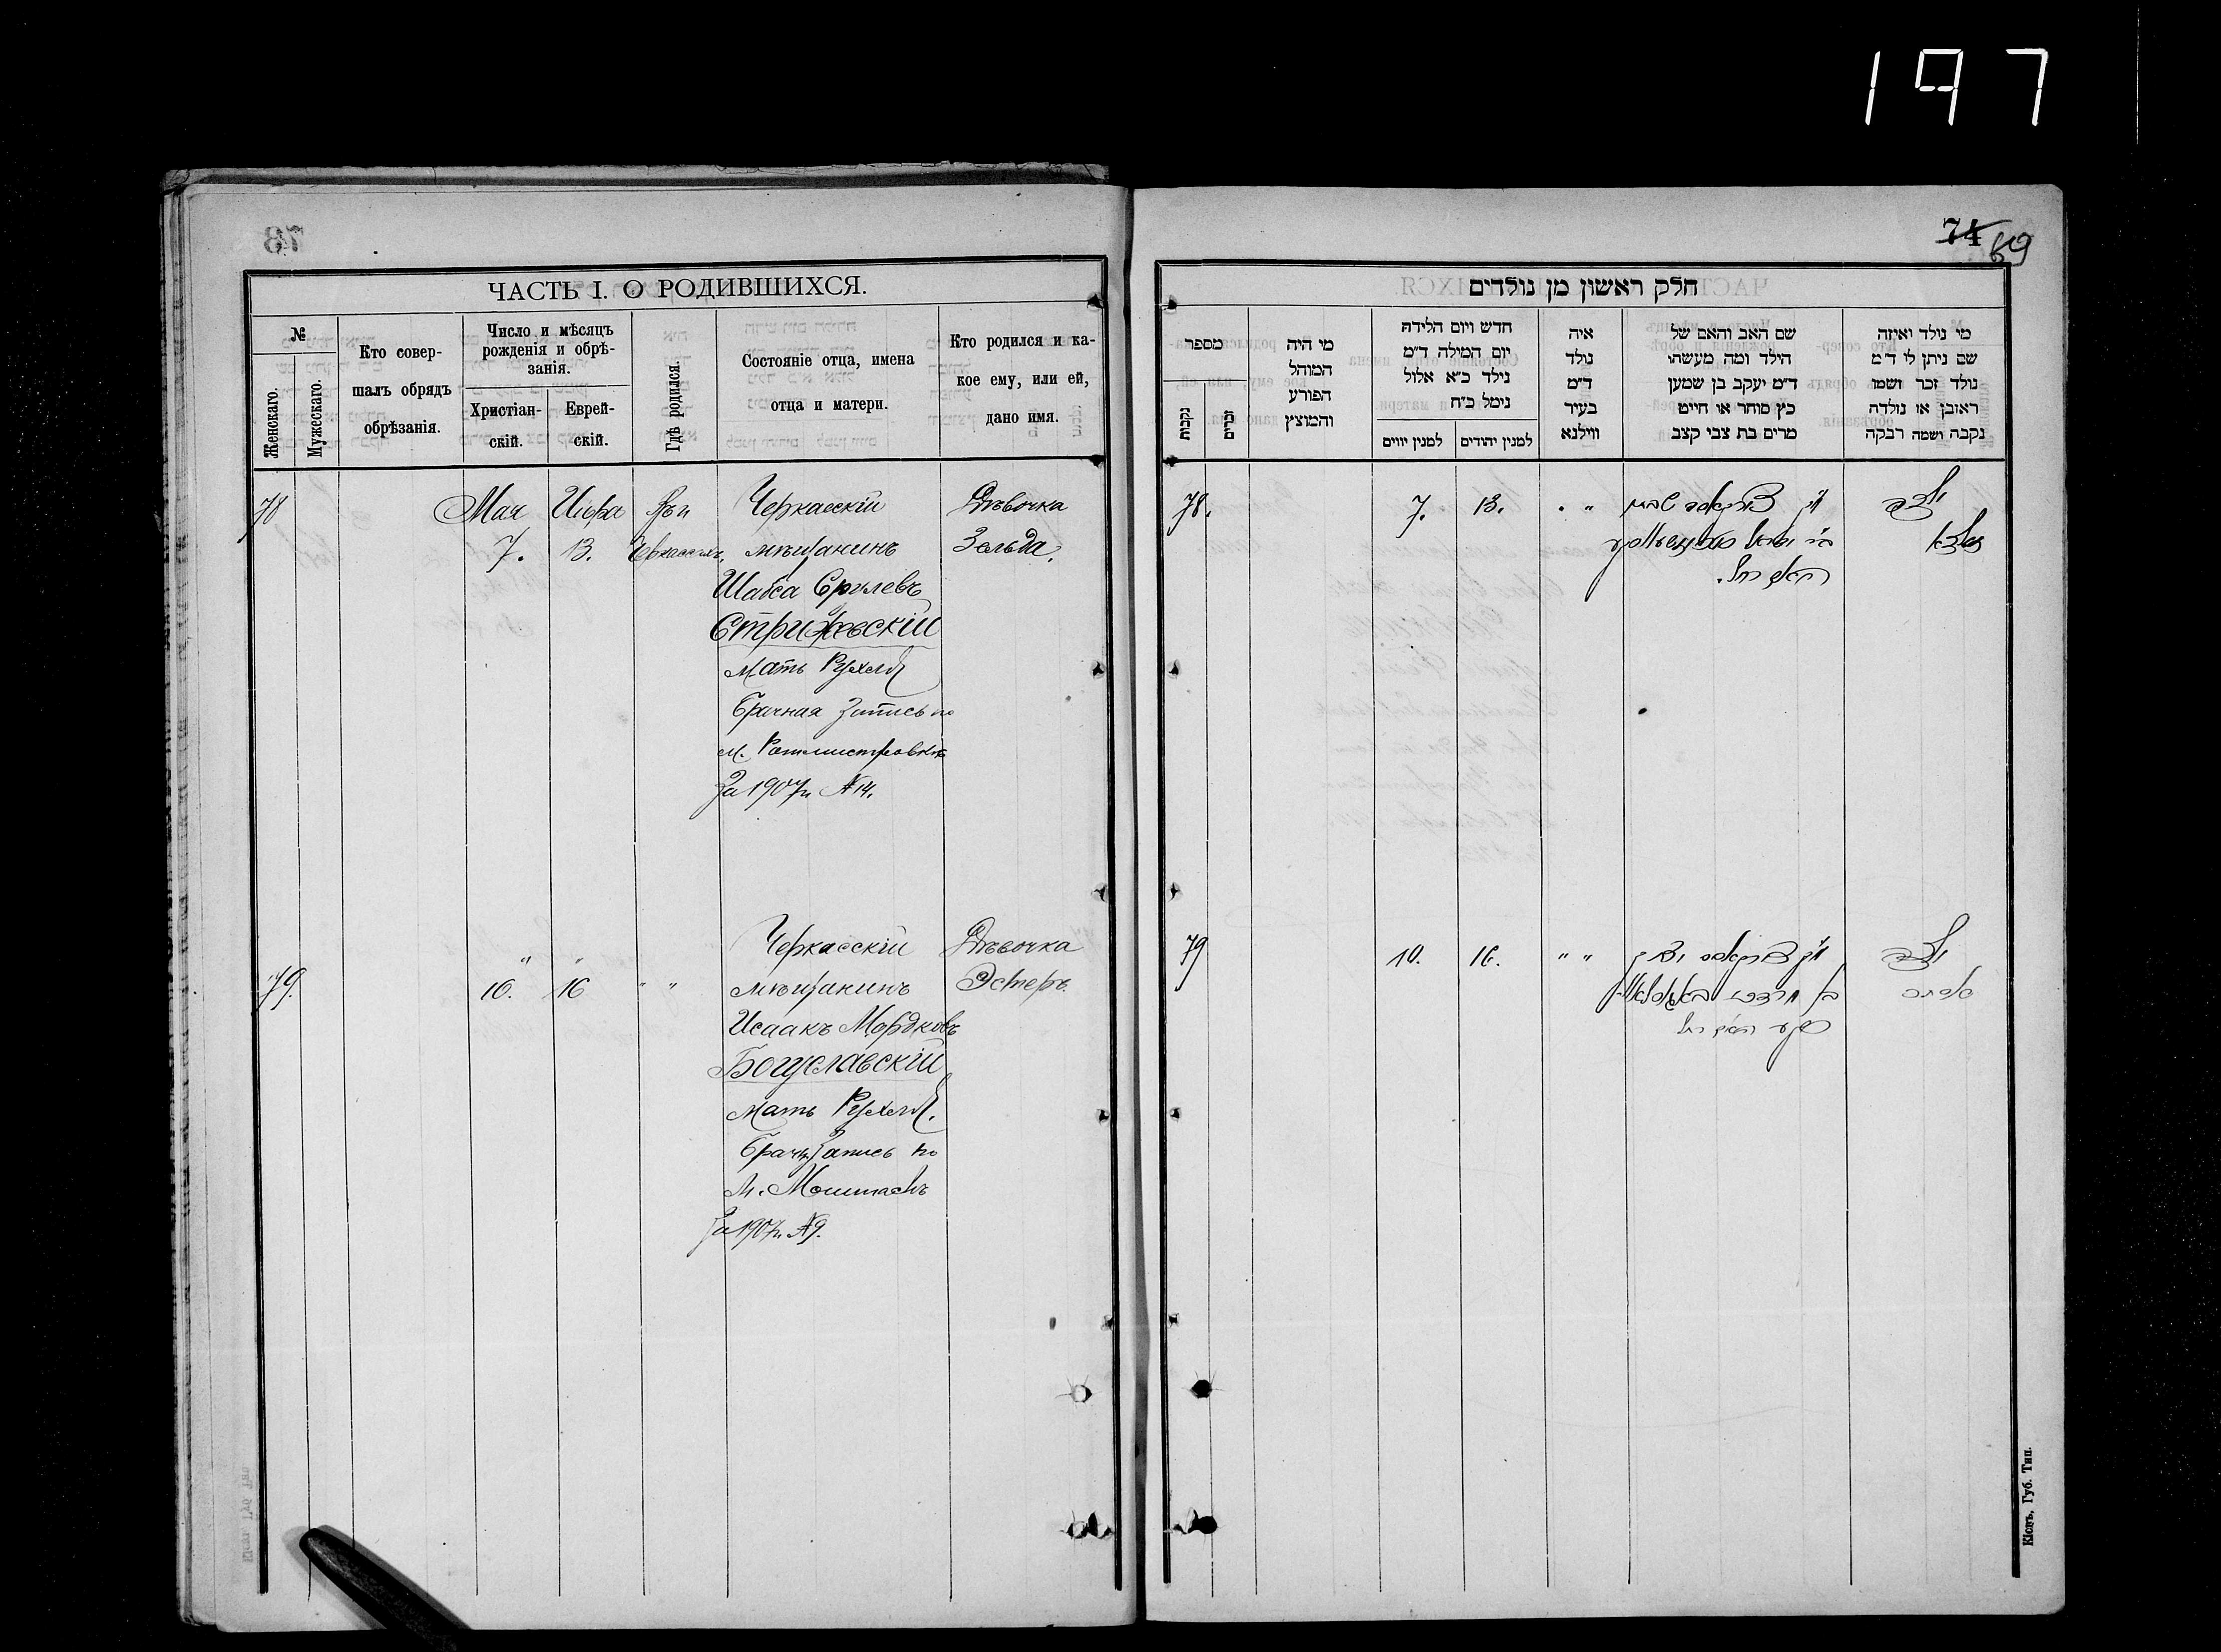 197
ЧАСТЬ I. О РОДИВШИХСЯ.
№
Женскаго.
Мужескаго.
Кто совер-
шалъ обрядъ
обрѣзанія.
Число и мѣсяцъ
рожденія и обрѣ-
занія.
Христіан-
скій.
Еврей-
скій.
Гдѣ родился.
Состояніе отца, имена
отца и матери.
Кто родился и ка-
кое ему, или ей,
дано имя.
78 Мая Иіора Въ г. Черкасскій Дѣвочка
7. 13. Черкассахъ мѣщанинъ Зельда.
Шабса Срулевъ
Стрижевскій
мать Рухля
Брачная Запись по
м. Ротмистровкѣ
За 1907 г. № 14.
" " Черкасскій Дѣвочка
79. 10. 16 " " мѣщанинъ Эстеръ.
Исаакъ Мордковъ
Богуславскій
мать Рухля.
Брачн. Запись по
м. Мошнахъ
За 1907 г. № 9.
74 69
חלק ראשון מן נולדים
מספר
נקבות
זכרים
מי היה
המוהל
הפורע
והמוצץ
חדש ויום הלידה
יום המילה ד״מ
נילד כ״א אלול
נימל כ״ח
למנין יווים
למנין יהודים
איה
נולד
ד״מ
בעיר
ווילנא
שם האב והאם של
הילד ומה מעשהו
ד״מ יעקב בן שמען
כץ סוחר או חייט
מרים בת צבי קצב
מי נולד ואיזה
שם ניתן לי ד״מ
נולד זכר ושמו
ראובן או נולדה
נקבה ושמה רבקה
78. 7. 13. " " שבתי ילדה
זעלדא
רחל.
79 10. 16. " " יצחק ילדה
בן אסתר
רחל
Кіевъ, Губ. Тип.